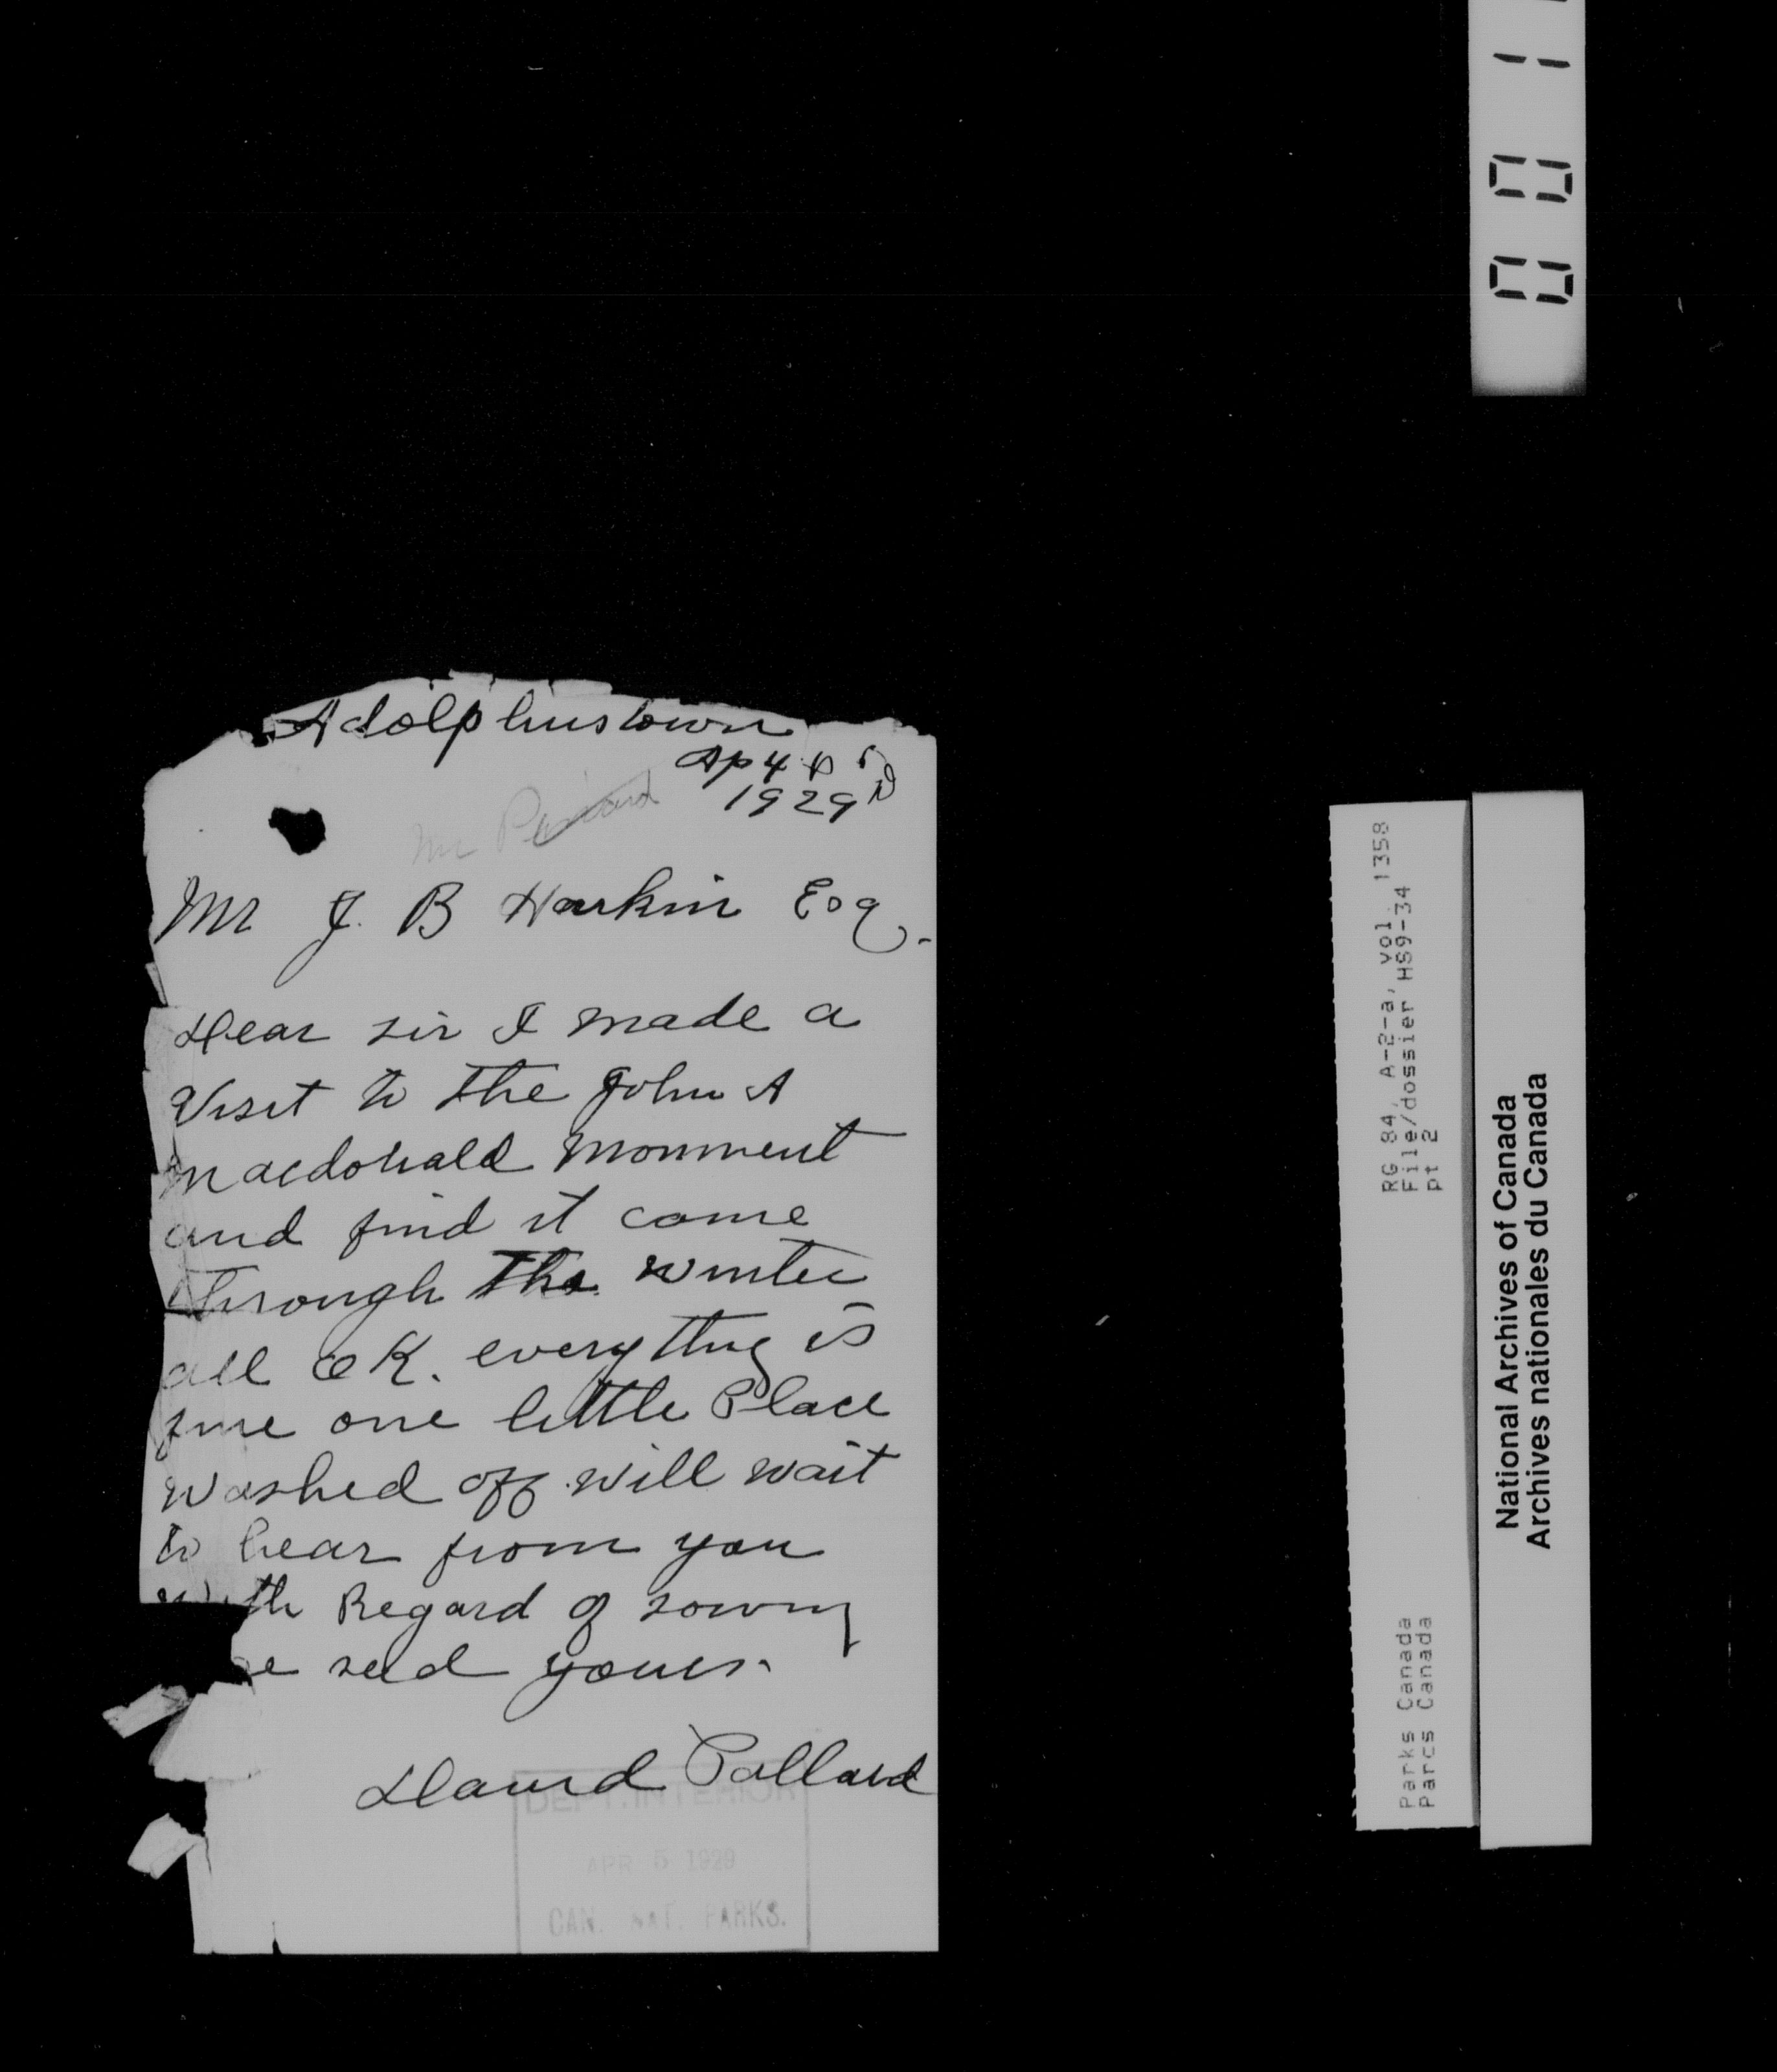 Adolphustown
Ap 4
1929
Mr
Mr J. B Harkin Esq.
Dear sir I made a
Visit to the John A
Macdonald Monment
and find it come
through the winter
all OK. everything is
fine one little Place
washed off will wait
to hear from you
with Regard of sowing
seed yours.
David Pollard
DEPT. INTERIOR
APR 5 1929
CAN. NAT. PARKS.
001
RG 84, A-2-a, vol. 1358
File/dossier HS9-34
pt 2
Parks Canada
Parcs Canada
National Archives of Canada
Archives nationales du Canada